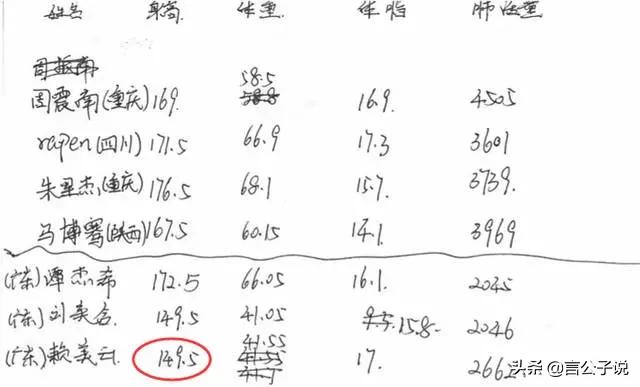 姓名 身高 体重 体脂 肺活量
周振南
58.5
周震南(重庆) 169. 58.8 16.9. 4505
rapen(四川) 171.5 66.9 17.3 3601
朱星杰(重庆) 176.5 68.1 15.7. 3739.
马博骞(陕西) 167.5 60.15 14.1 3969
(广东)谭杰希 172.5 66.05 16.1. 2045
(广东)刘美含. 149.5 41.05 15.8. 2046
41.55
(广东)赖美云 149.5 41.55 17. 266
头条 @言公子说